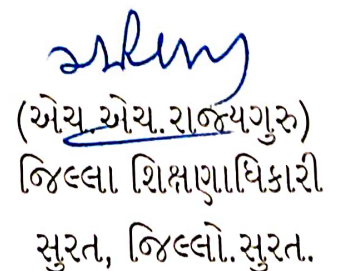 (એચ.એચ.રાજ્યગુરુ)
જિલ્લા શિક્ષણાધિકારી
સુરત, જિલ્લો.સુરત.